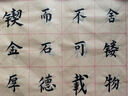 锲而不舍
金石可镂
厚德載物